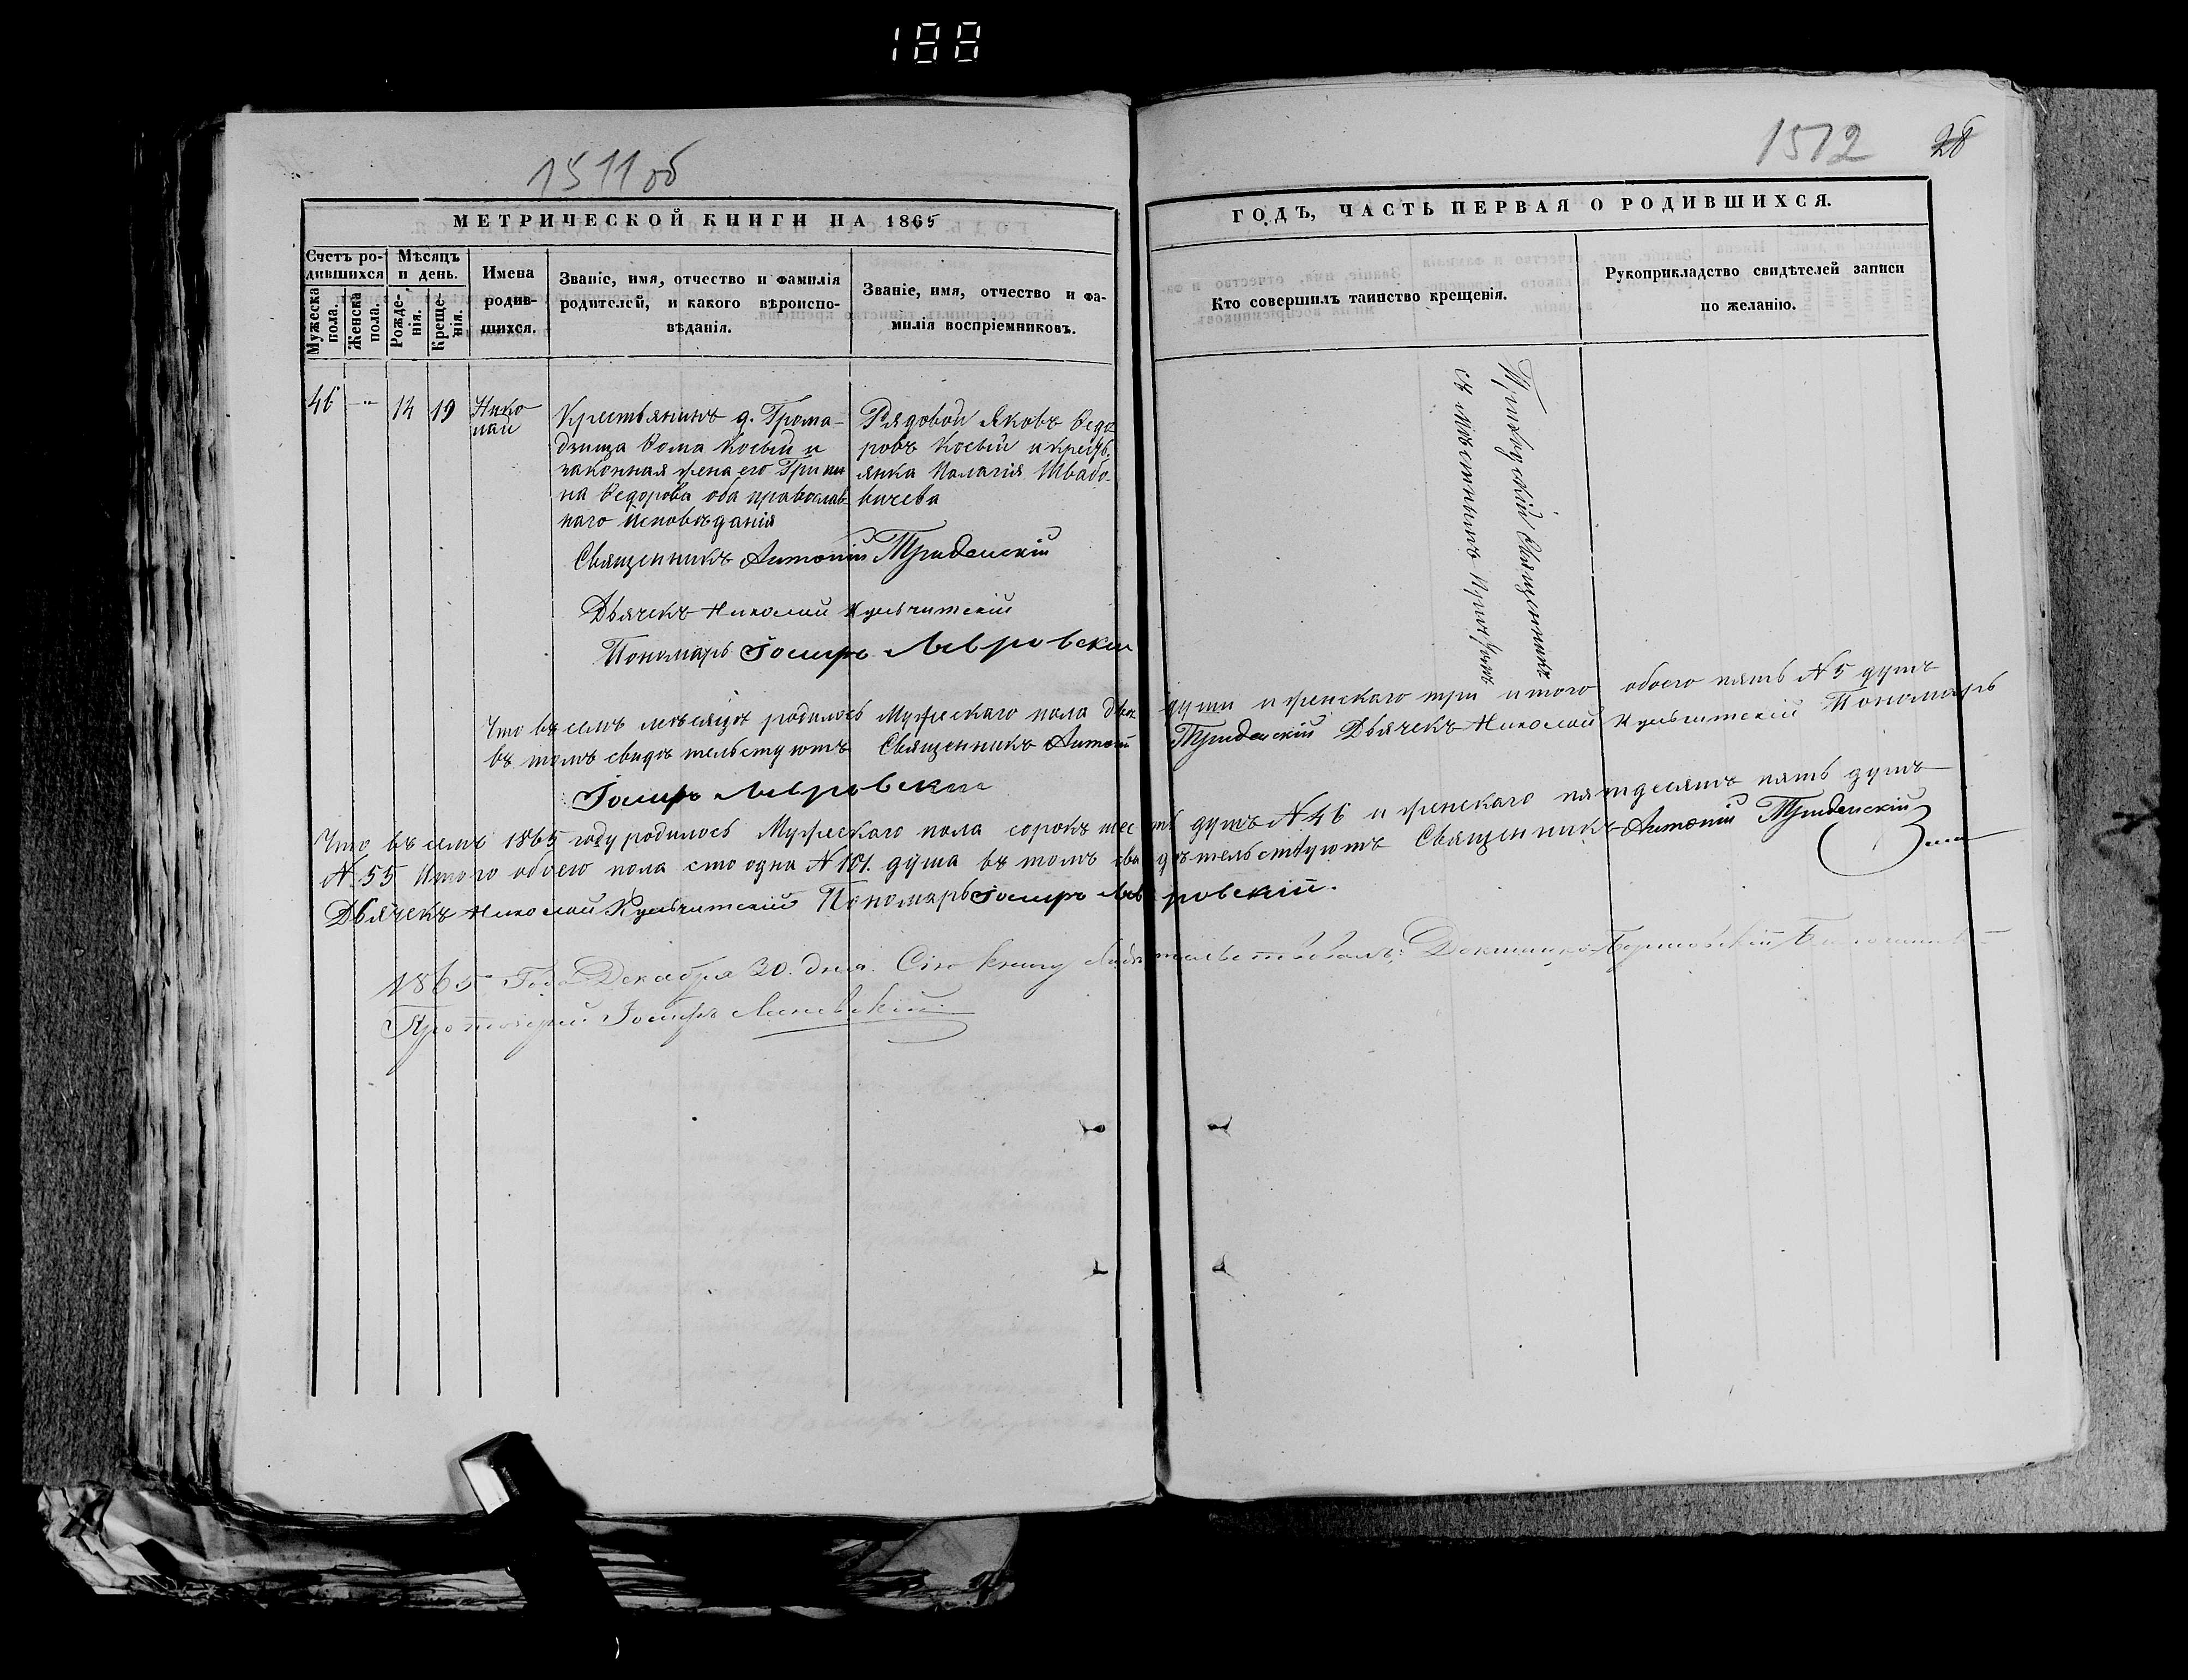 188
1511 об
1512
28
МЕТРИЧЕСКОЙ КНИГИ НА 1865
ГОДЪ, ЧАСТЬ ПЕРВАЯ О РОДИВШИХСЯ.
Счетъ ро-
дившихся
Мужеска
пола.
Женска
пола.
Мѣсяцъ
и день.
Рожде-
нія.
Креще-
нія.
Имена
родив-
шихся.
Званіе, имя, отчество и фамилія
родителей, и какого вѣроиспо-
вѣданія.
Званіе, имя, отчество и фа-
милія воспріемниковъ.
Кто совершилъ таинство крещенія.
Рукоприкладство свидѣтелей записи
по желанію.
46 " 14 19
Нико
лай
Крестьянинъ д. Грома-
дзища Фома Косый и
законная жена его Грипи
на Федорова оба православ
наго исповѣданія
Рядовой Яковъ Федо
ровъ Косый и крестъ
янка Палагія Швабо-
вичева
Приходскій Священникъ
съ мѣстнымъ причтомъ
Священникъ Антоній
Дьячекъ Николай Кульчитскій
Пономарь Іосифъ Лавровскій
Что въ семъ мѣсяцѣ родилось Мужескаго пола два души и женскаго три итого обоего пять N 5 душъ
въ томъ свидѣтельствуютъ Священникъ Антоній Дьячекъ Николай Кульчитскій Пономарь
Іосифъ Лавровскій
Что въ семъ 1865 году родилось Мужескаго пола сорокъ шесть душъ N 46 и женскаго пятдесятъ пять душъ
N 55 Итого обоего пола сто одна N 101. душа въ томъ свидѣтельствуютъ Священникъ Антоній
Дьячекъ Николай Кульчитскій Пономарь Іосифъ Лавровскій.
1865 Года Декабря 30. дня. Сію книгу свидѣтельствовалъ:
Протоіерей Іосифъ